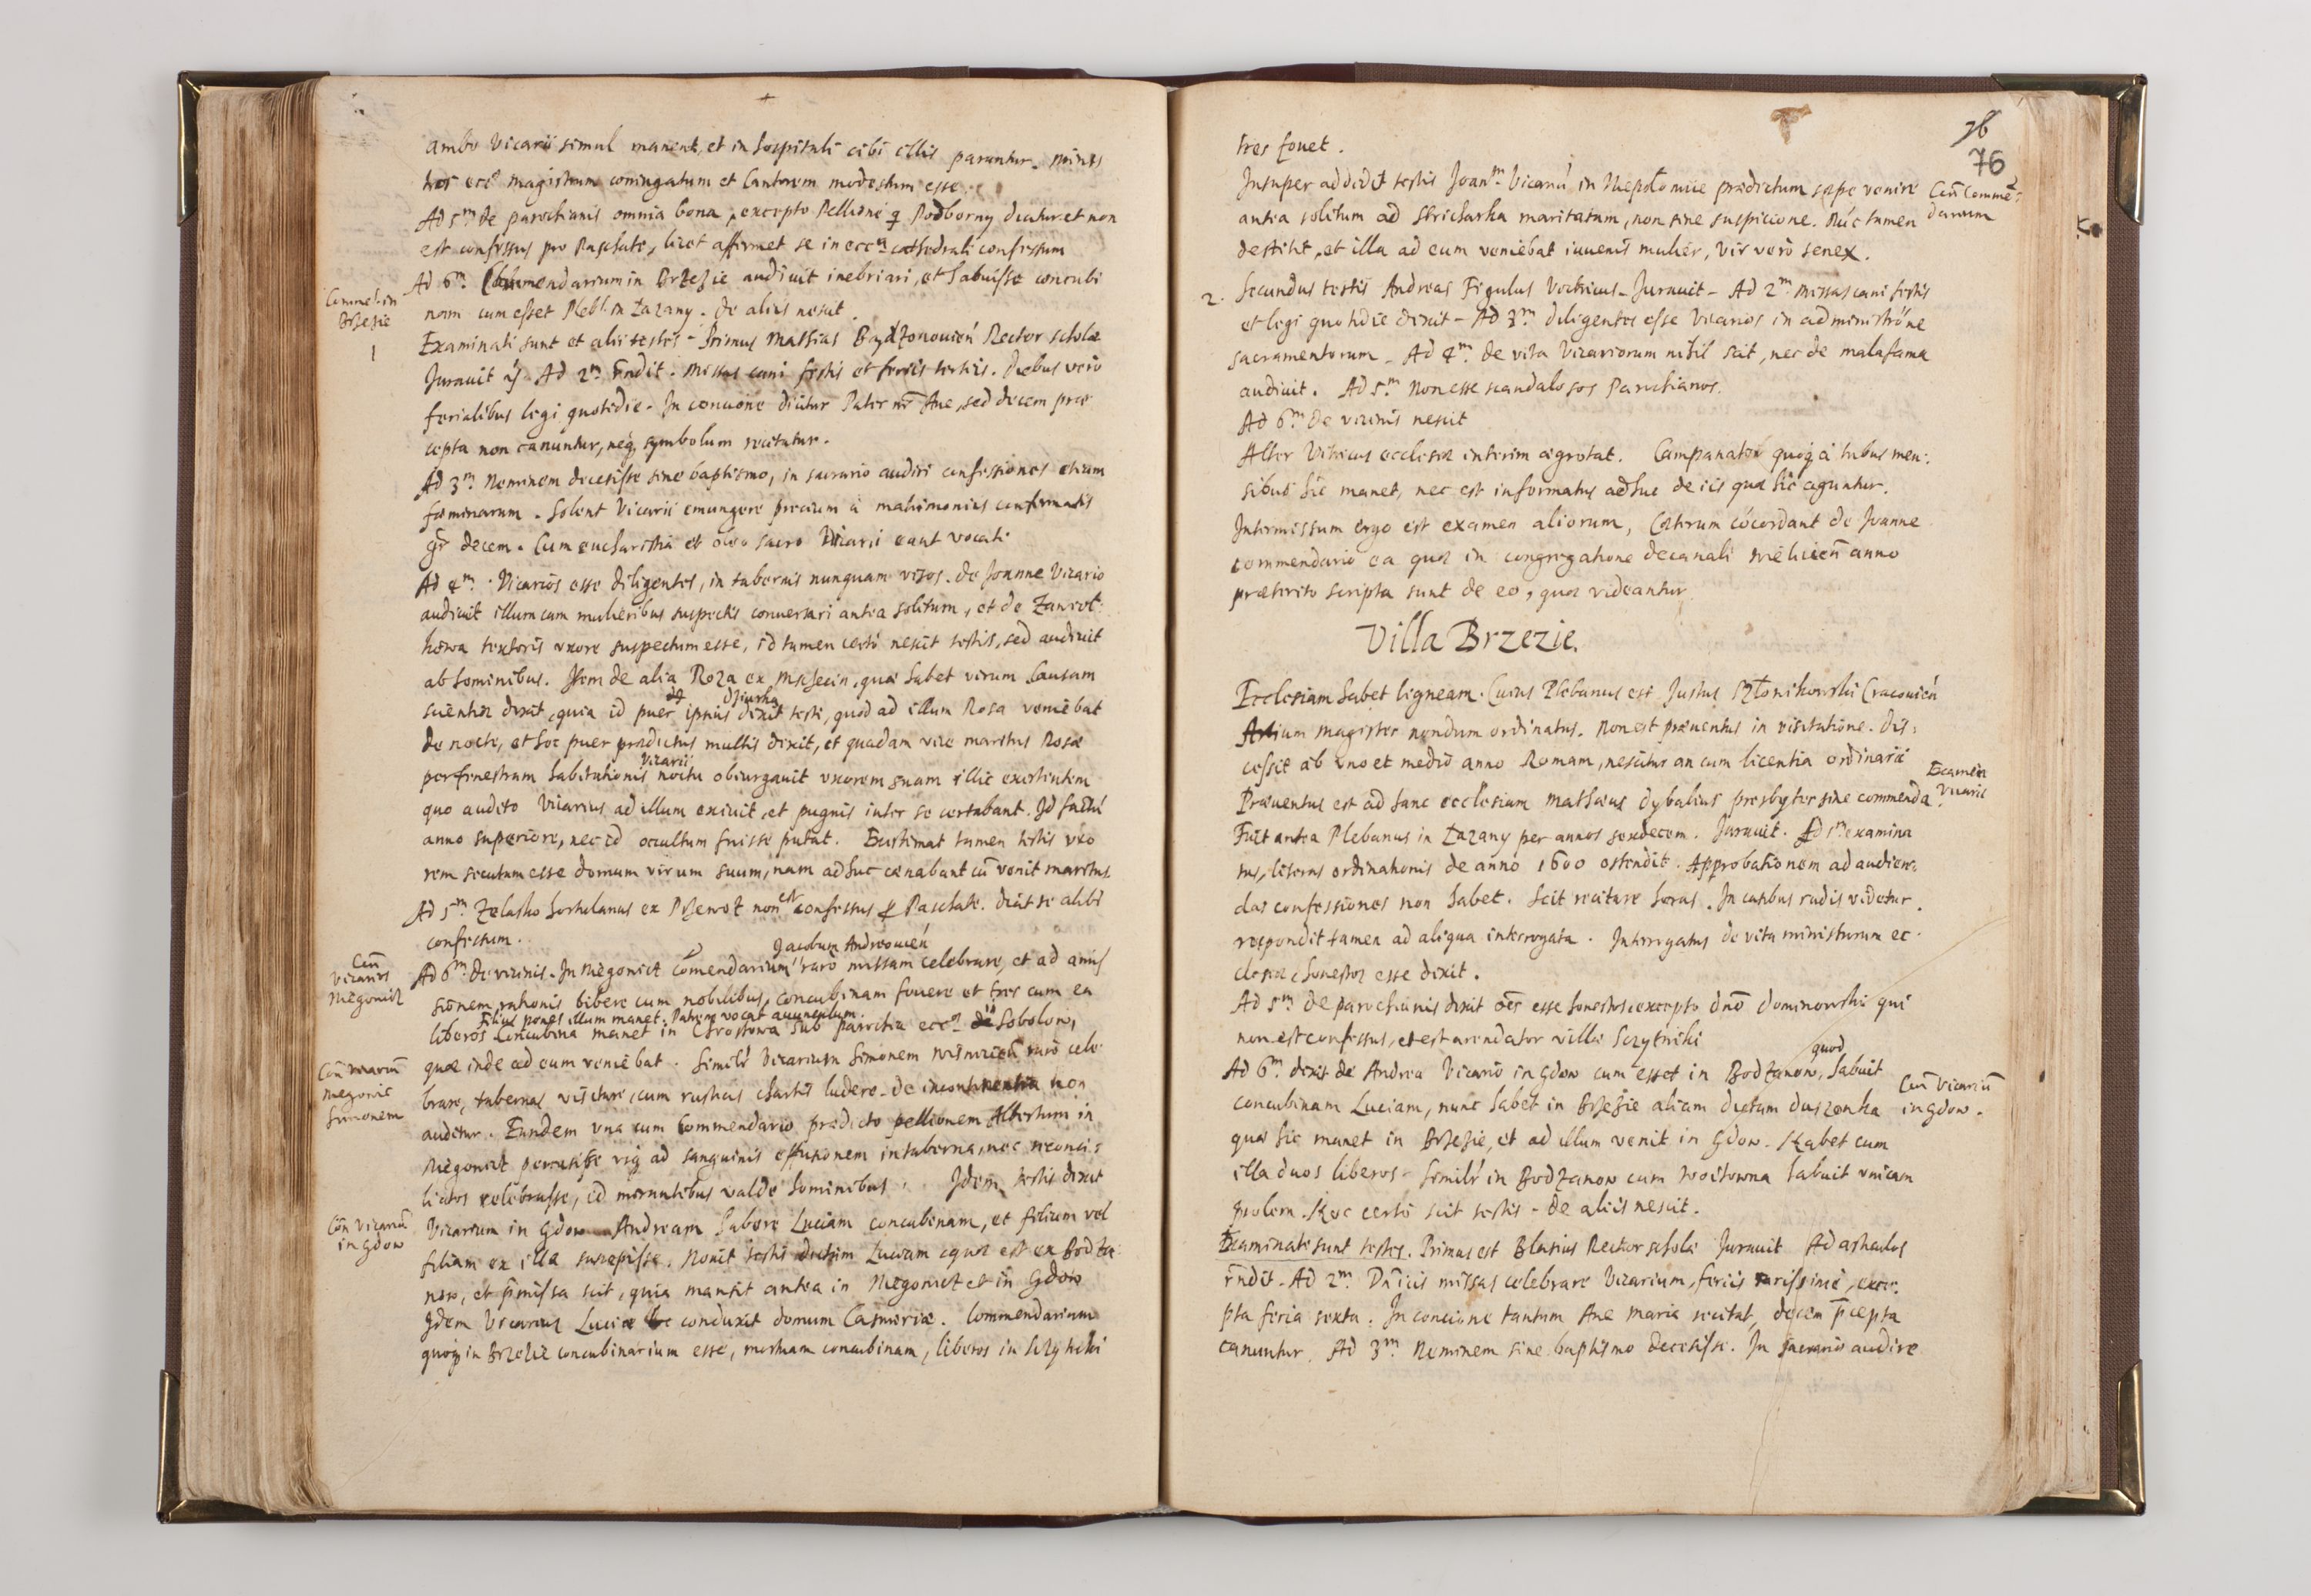 Ambo Vicarii simul manent, et in hospitali cibi illis parantur. minis
tros eccae magistrum coniugatum et Cantorem modestum esse.
Ad 5m de parochianis omnia bona, excepto Pellione q Podborny dicitur et non
est confessus pro Paschate, licet affirmet se in ecca cathedrali confessum
Ad 6m Commendarium in Brzezie audivit inebriari, et habuisse concubi
Commen. in
Brzezie
nam cum esset Pleb. in Łazany. de aliis nescit.
Examinati sunt et alii testes - Primus Mathias Bodzonovien Rector scholae
1
Juravit Ad 2m Rndit. missas cani festis et feriis tertiis. Diebus vero
ferialibus legi quotidie. In concione dicitur Pater nr Ave, sed decem prae
cepta non canuntur, neq symbolum recitatur.
Ad 3m Neminem decessisse sine baptismo, in sacrario audiri confessiones etiam
foeminarum. Solent Vicarii emungere precium a matrimoniis confirmatis
gr decem. Cum eucharistia et oleo sacro Vicarii eant vocati
Ad 4m. Vicarios esse diligentes, in tabernis nunquam visos. de Joanne Vicario
audivit illum cum mulieribus suspectis conversari antea solitum, et de
textoris uxore suspectum esse, id tamen certo nescit testis, sed audivit
ab hominibus. Item de alia Roza ex, quae habet virum causam
de Dziurka
scientiae dixit, quia id puer ipsius dixit testi, quod ad illum Rosa veniebat
de nocte, et hoc puer praedictus multis dixit, et quadam vice maritus Rosae
Vicarii
per fenestram habitationis noctu obiurgavit uxorem suam illic existentem
quo audito Vicarius ad illum exivit, et pugnis inter se certabant. Id factu
anno superiore, nec id occultum fuisse putat. Existimat tamen testis uxo
rem secutam esse domum virum suum, nam adhuc caenabant cu venit maritus
est
Ad 5m Zelasko hortulanus ex non confessus p Paschate. dicit se alibi
confessum.
Jacobum Andreovien
Cen
vicarios
Niegoviae
Ad 6m de vicinis. In Niegoviet Comendarium raro missam celebrare, et ad amis
sionem rationis bibere cum nobilibus, concubinam fovere et tres cum ea
Filius penes illum manet. Patrem vocat avunculum.
liberos Concubina manet in Chrostowa sub parochia eccae in Sobolow,
quae inde ad eum veniebat. Similr Vicarium Simonem raro cele
Con vicariu
Niegoviae
Simonem
brare, tabernas visitare, cum rusticis chartis ludere. de incontinentia non
auditur. Eundem una cum Commendario praedicto pellionem Albertum in
Niegoviet percussisse usq ad sanguinis effusionem in taberna, nec reconci:
liatos celebrasse, id mirantibus valde hominibus. Idem testis dixit
Con vicariu
in Gdow
Vicarium in Gdow Andream habere Luciam concubinam, et filium vel
filiam ex illa suscepisse. Novit testis dictam Luciam quae est ex Bodza:
now, et pmissa scit, quia mansit antea in Niegoviet et in Gdow
Idem Vicarius Luciae conduxit domum Casimiriae. Commendarium
quoq in Brzezie concubinarium esse, mortuam concubinam, liberos in Szczytniki
76
76
tres fovet.
Insuper addidit testis Joanm Vicariu in Niepołomice praedictum saepe venire
Con Comme:
darium
antea solitum ad Stricharka maritatam, non sine suspicione. Nuc tamen
destitit, et illa ad eum veniebat iuvenis mulier, vir vero senex.
2. Secundus testis Andreas Figulus Vitricus - Juravit - Ad 2m missas cani festis
et legi quotidie dixit - Ad 3m diligentes esse Vicarios in administrone
sacramentorum - Ad 4m. de vita Vicariorum nihil scit, nec de mala fama
audivit. Ad 5m Non esse scandalosos Parochianos.
Ad 6m de vicinis nescit
Alter Vitricus ecclesiae interim aegrotat. Campanator quoq a tribus men:
sibus hic manet, nec est informatus adhuc de iis quae hic aguntur.
Intermissum ergo est examen aliorum, Caeterum cocordant de Joanne
commendario ea quae in congregatione decanali Wielicien anno
praeterito scripta sunt de eo, quae videantur
Villa Brzezie.
Ecclesiam habet ligneam. Cuius Plebanus est Justus Słonikowski Cracovien
Artium magister nondum ordinatus. Non est praeventus in visitatione. Dis:
cessit ab uno et medio anno Romam, nescitur an cum licentia ordinarii
Examen
Vicarii
Praeventus est ad hanc ecclesiam Mathaeus dybalius presbyter sine commenda.
Fuit antea Plebanus in Łazany per annos sexdecem. Juravit. Ad 1m examina
tus, literas ordinationis de anno 1600 ostendit. Approbationem ad audien:
das confessiones non habet. Scit recitare horas. In casibus rudis videtur.
respondit tamen ad aliqua interrogata. Interrogatus de vita ministrorum ec:
clesiae, honestos esse dixit.
Ad 5m de parochianis dixit oes esse honestos excepto dno Dominowski qui
non est confessus, et est arendator villae Szczytniki
quod
Ad 6m dixit de Andrea Vicario in Gdow cum esset in Bodzanow, habuit
Con Vicariu
in Gdow.
concubinam Luciam, nunc habet in Brzezie aliam dictam duszenka
quae hic manet in Brzezie, et ad illum venit in Gdow. Habet cum
illa duos liberos - Similr in Bodzanow cum Woitowna habuit unicam
prolem. Hoc certo scit testis - de aliis nescit.
Examinati sunt testes. Primus est Blasius Rector scholae Juravit Ad articulos
rndit. Ad 2m. Dnicis missas celebrare Vicarium, feriis rarissime, exce:
pta feria sexta. In concione tantum Ave Maria recitat, decem pcepta
canuntur. Ad 3m Neminem sine baptismo decessisse. In sacrario audire